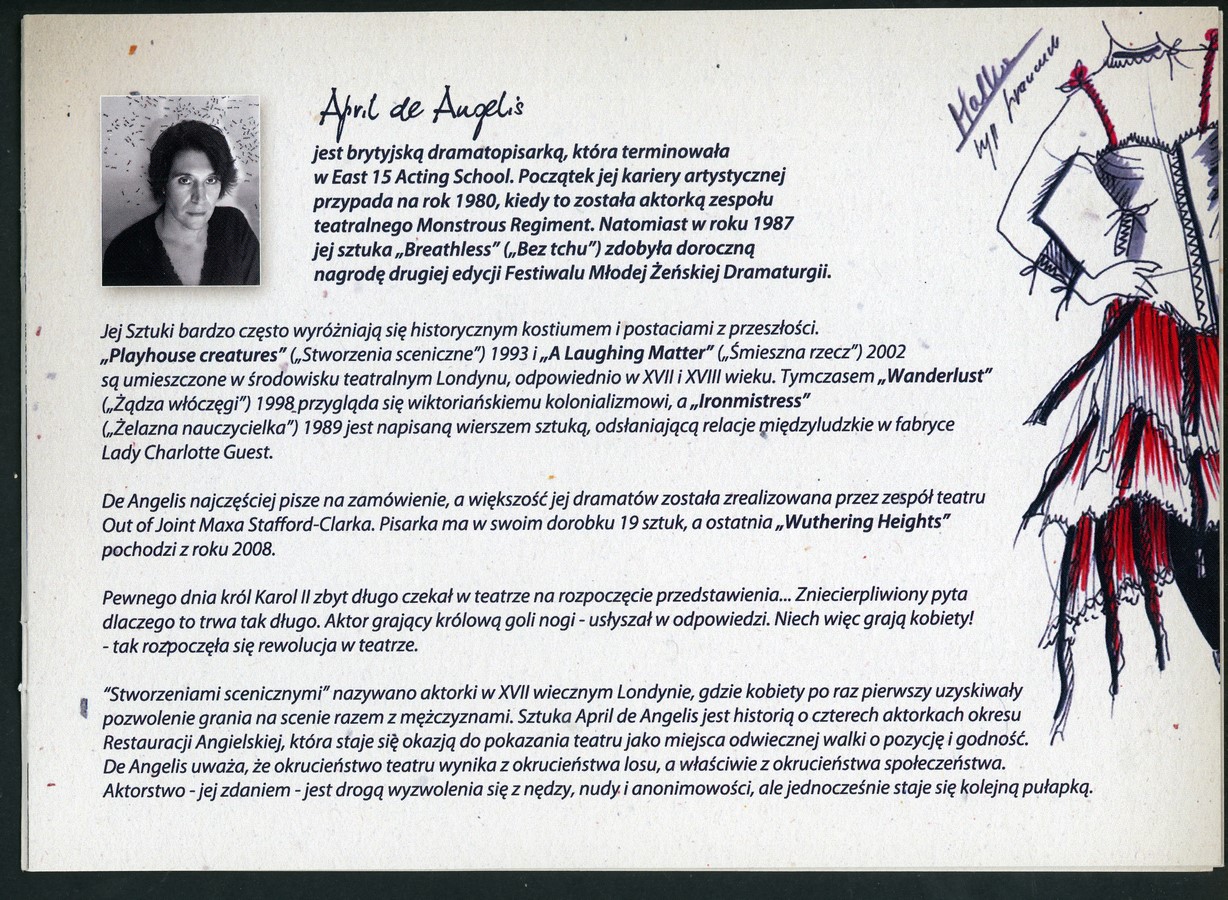 April de Angelis
jest brytyjską dramatopisarką, która terminowała
w East 15 Acting School. Początek jej kariery artystycznej
przypada na rok 1980, kiedy to została aktorką zespołu
teatralnego Monstrous Regiment. Natomiast w roku 1987
jej sztuka „Breathless” („Bez tchu”) zdobyła doroczną
nagrodę drugiej edycji Festiwalu Młodej Żeńskiej Dramaturgii.
Jej Sztuki bardzo często wyróżniają się historycznym kostiumem i postaciami z przeszłości.
„Playhouse creatures” („Stworzenia sceniczne”) 1993 i „A Laughing Matter” („Śmieszna rzecz”) 2002
są umieszczone w środowisku teatralnym Londynu, odpowiednio w XVII i XVIII wieku. Tymczasem „Wanderlust”
(„Żądza włóczęgi”) 1998 przygląda się wiktoriańskiemu kolonializmowi, a „Ironmistress”
(„Żelazna nauczycielka”) 1989 jest napisaną wierszem sztuką, odsłaniającą relacje międzyludzkie w fabryce
Lady Charlotte Guest.
De Angelis najczęściej pisze na zamówienie, a większość jej dramatów została zrealizowana przez zespół teatru
Out of Joint Maxa Stafford-Clarka. Pisarka ma w swoim dorobku 19 sztuk, a ostatnia „Wuthering Heights”
pochodzi z roku 2008.
Pewnego dnia król Karol II zbyt długo czekał w teatrze na rozpoczęcie przedstawienia... Zniecierpliwiony pyta
dlaczego to trwa tak długo. Aktor grający królową goli nogi - usłyszał w odpowiedzi. Niech więc grają kobiety!
- tak rozpoczęła się rewolucja w teatrze.
“Stworzeniami scenicznymi” nazywano aktorki w XVII wiecznym Londynie, gdzie kobiety po raz pierwszy uzyskiwały
pozwolenie grania na scenie razem z mężczyznami. Sztuka April de Angelis jest historią o czterech aktorkach okresu
Restauracji Angielskiej, która staje się okazją do pokazania teatru jako miejsca odwiecznej walki o pozycję i godność.
De Angelis uważa, że okrucieństwo teatru wynika z okrucieństwa losu, a właściwie z okrucieństwa społeczeństwa.
Aktorstwo - jej zdaniem - jest drogą wyzwolenia się z nędzy, nudy i anonimowości, ale jednocześnie staje się kolejną pułapką.